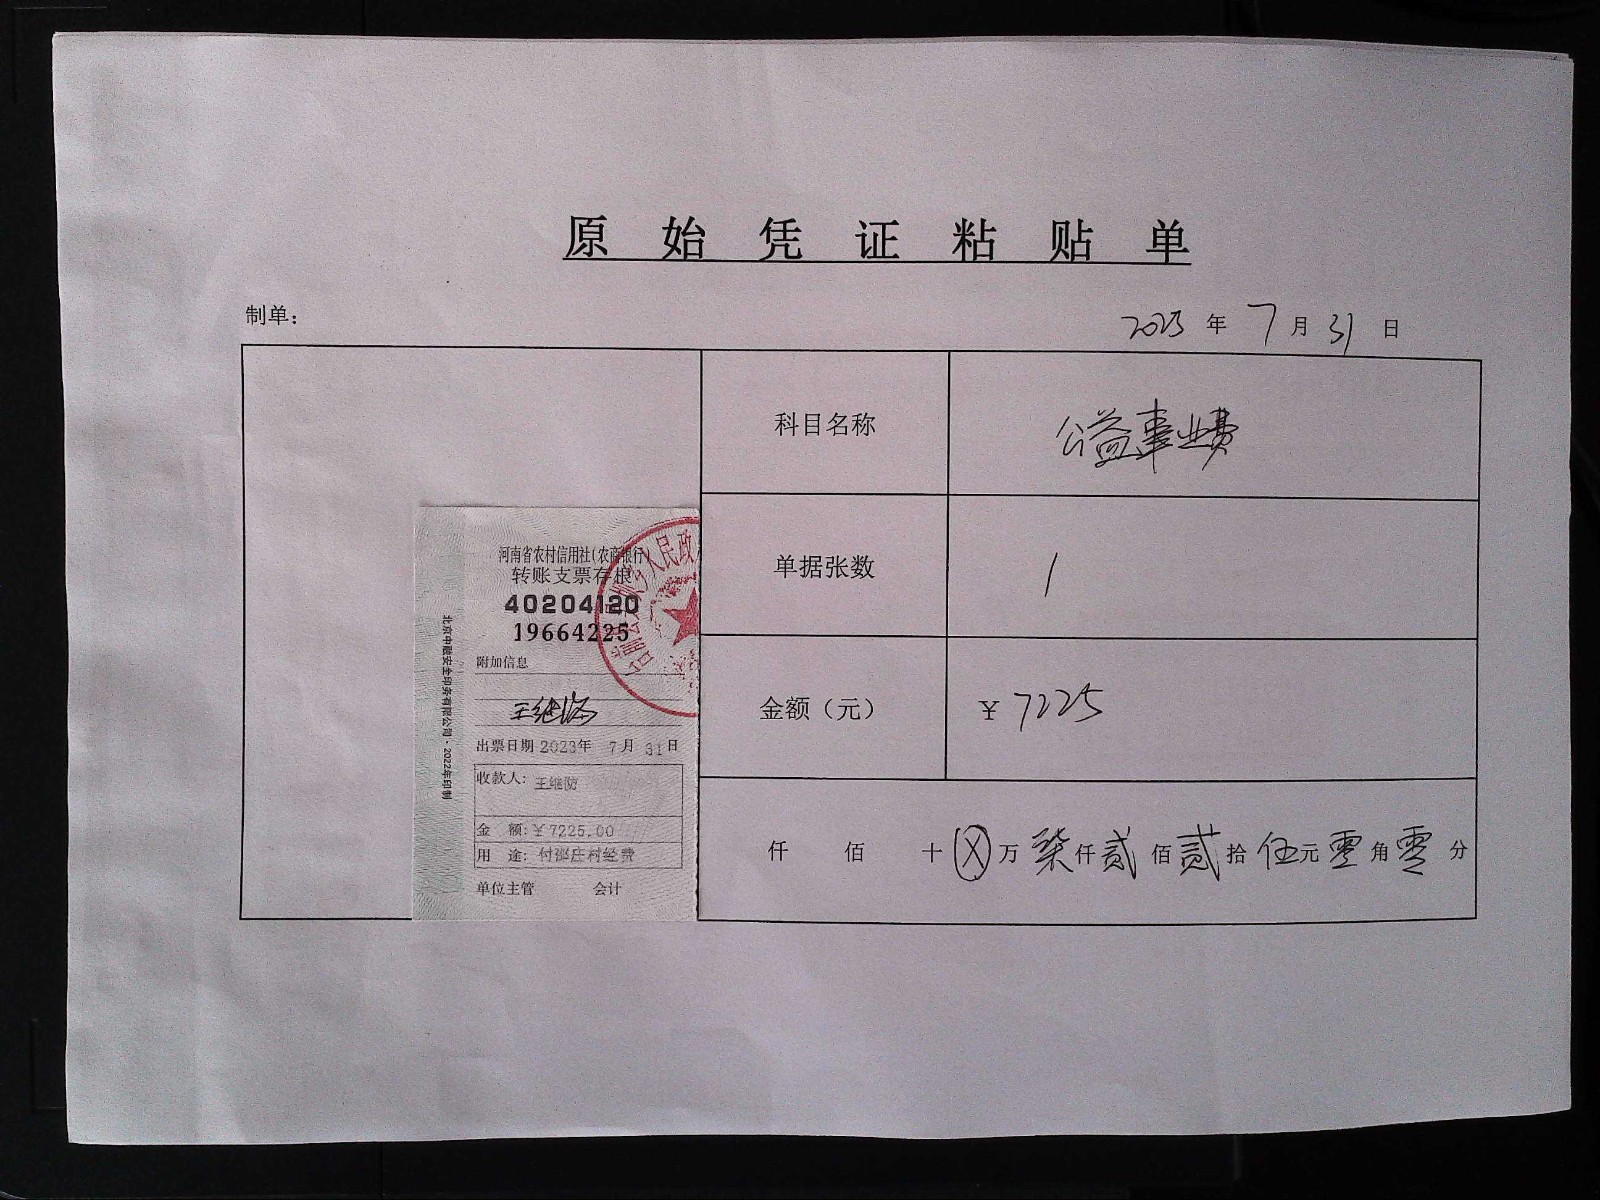 原始凭证粘贴单
制单：
2023年7月31日
科目名称
公益事业费
单据张数
1
金额（元）
￥7225
仟 佰 十ⓧ万柒仟贰佰贰拾伍元零角零分
河南省农村信用社(农商银行)
转账支票存根
40204120
19664225
附加信息
出票日期2023年 7月 31日
收款人：王继防
金 额：￥7225.00
用 途：付邵庄村经费
单位主管 会计
北京中融安全印务有限公司·2022年印制
乡人民政